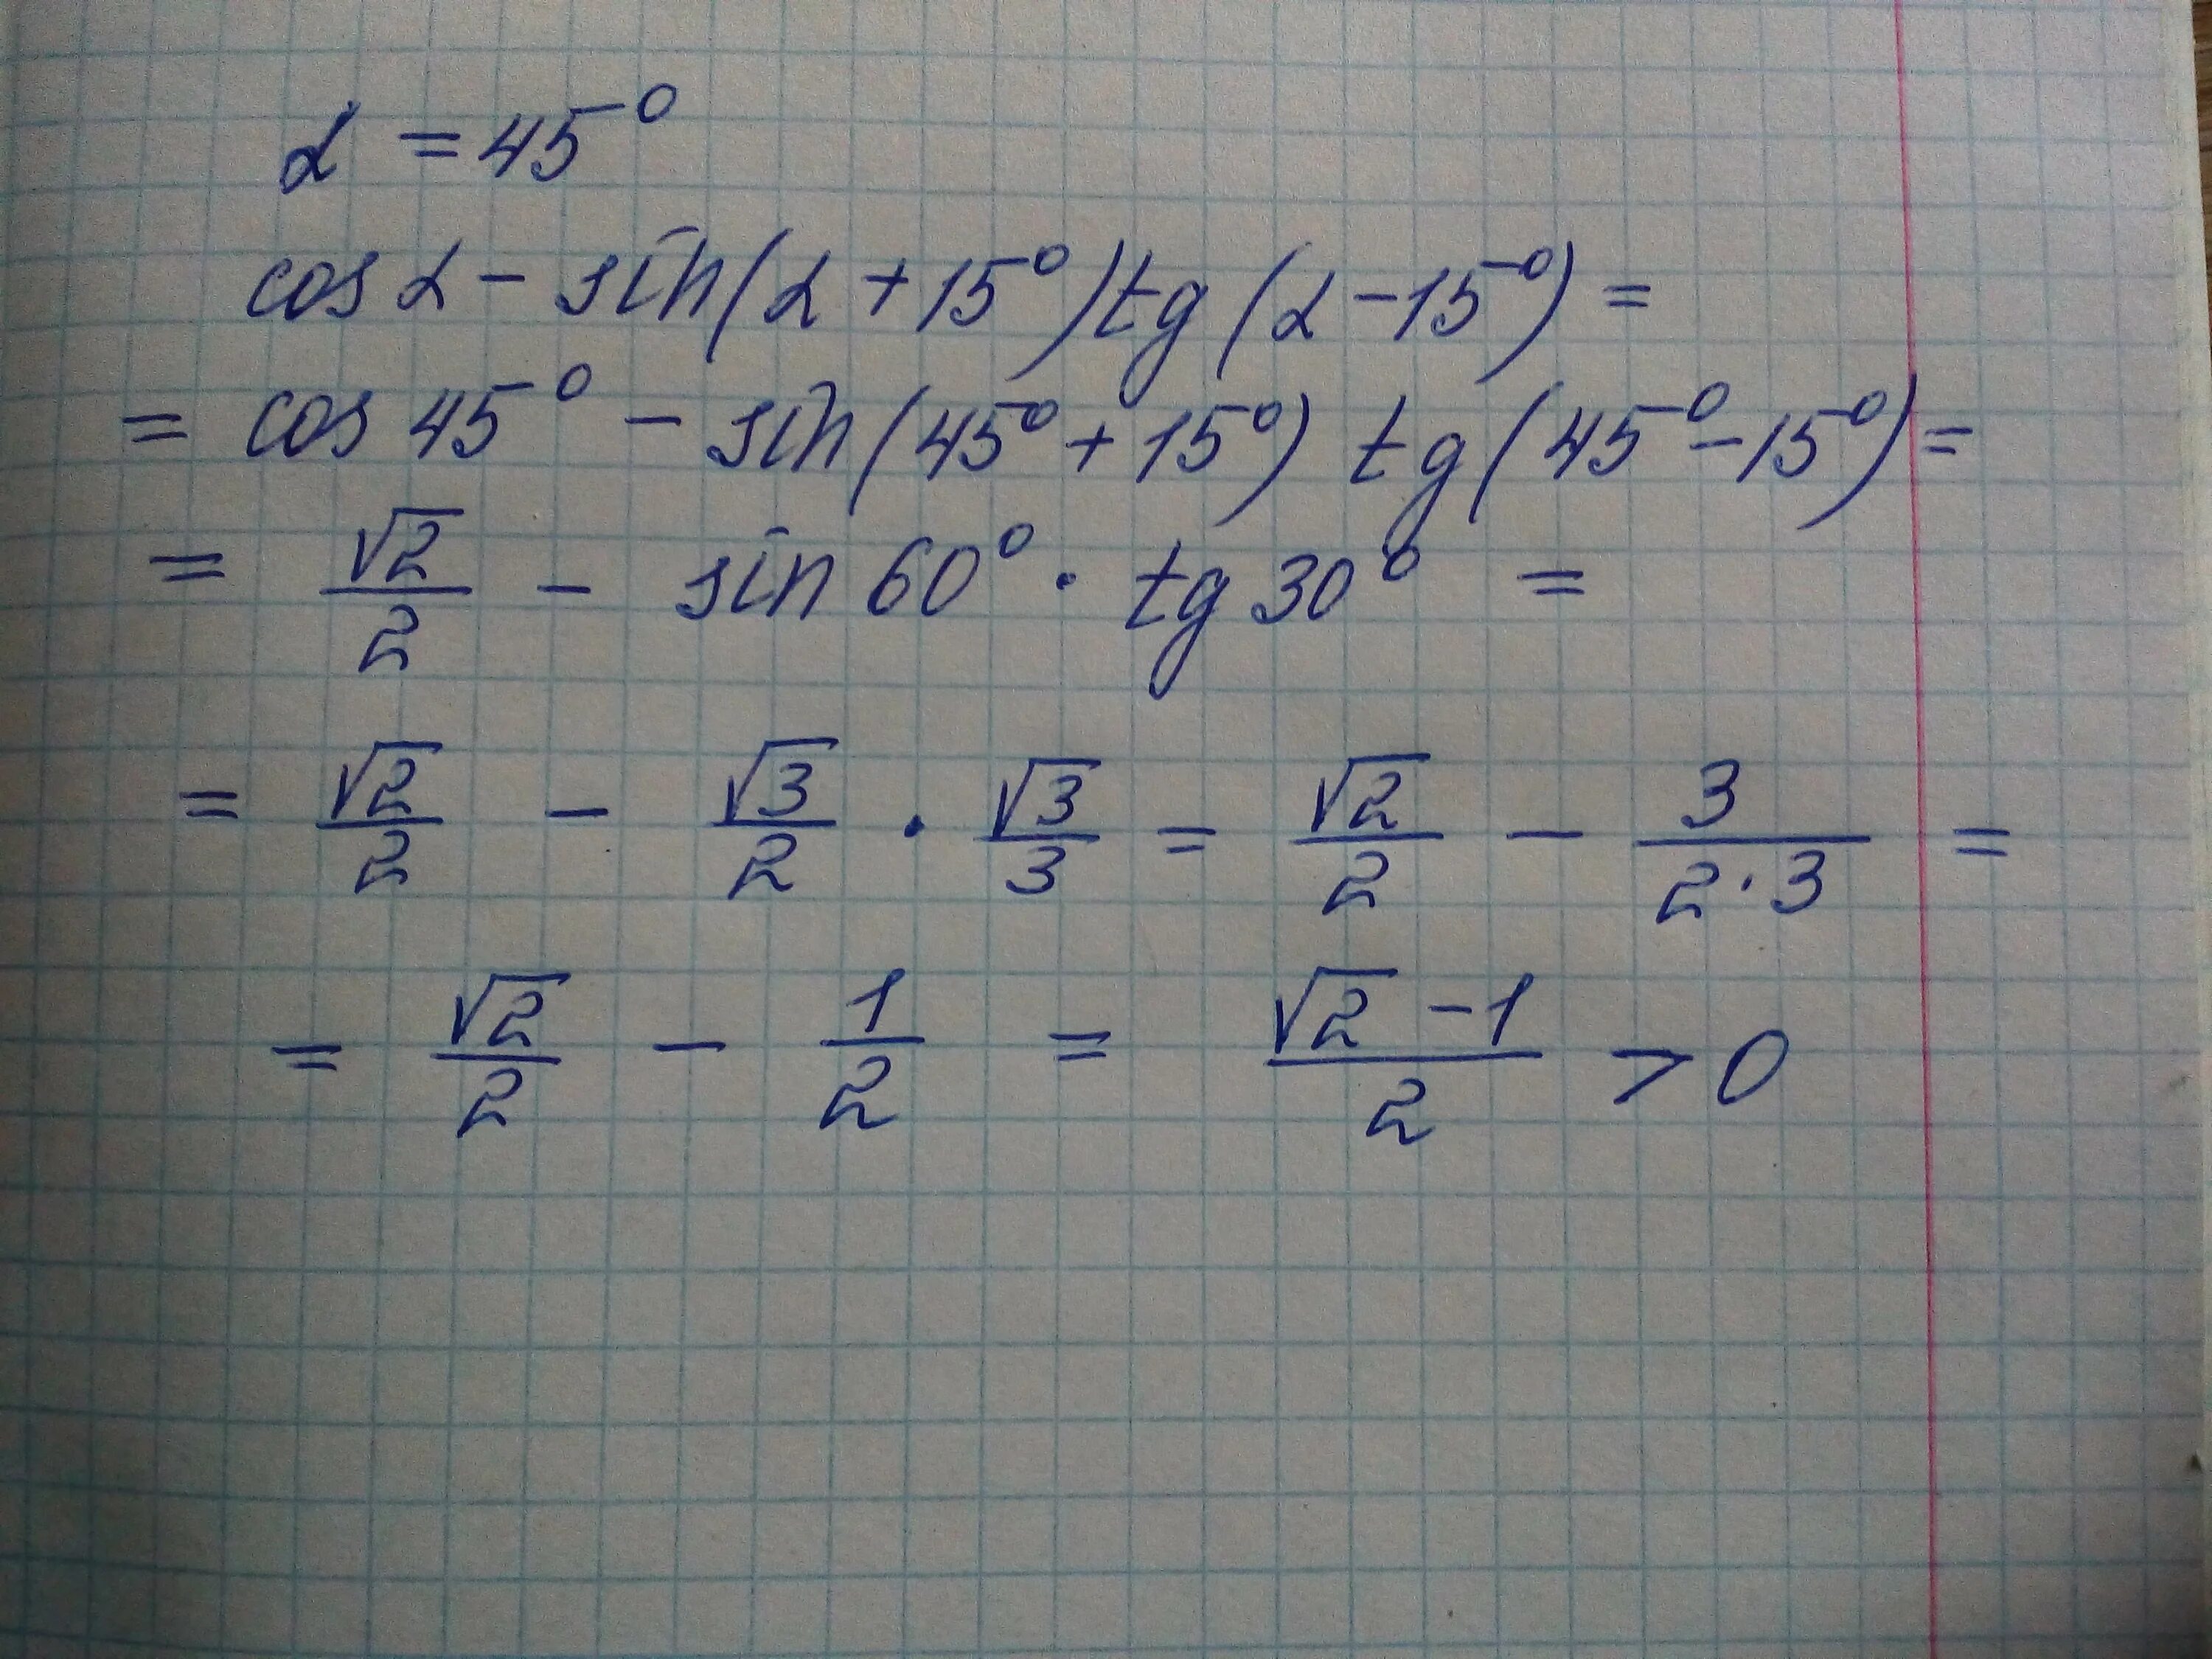 α = 45°
cos α - sin(α + 15°) tg (α - 15°) =
= cos 45° - sin(45° + 15°) tg (45° - 15°) =
= √2/2 - sin 60° · tg 30° =
= √2/2 - √3/2 · √3/3 = √2/2 - 3/(2·3) =
= √2/2 - 1/2 = (√2 - 1)/2 > 0